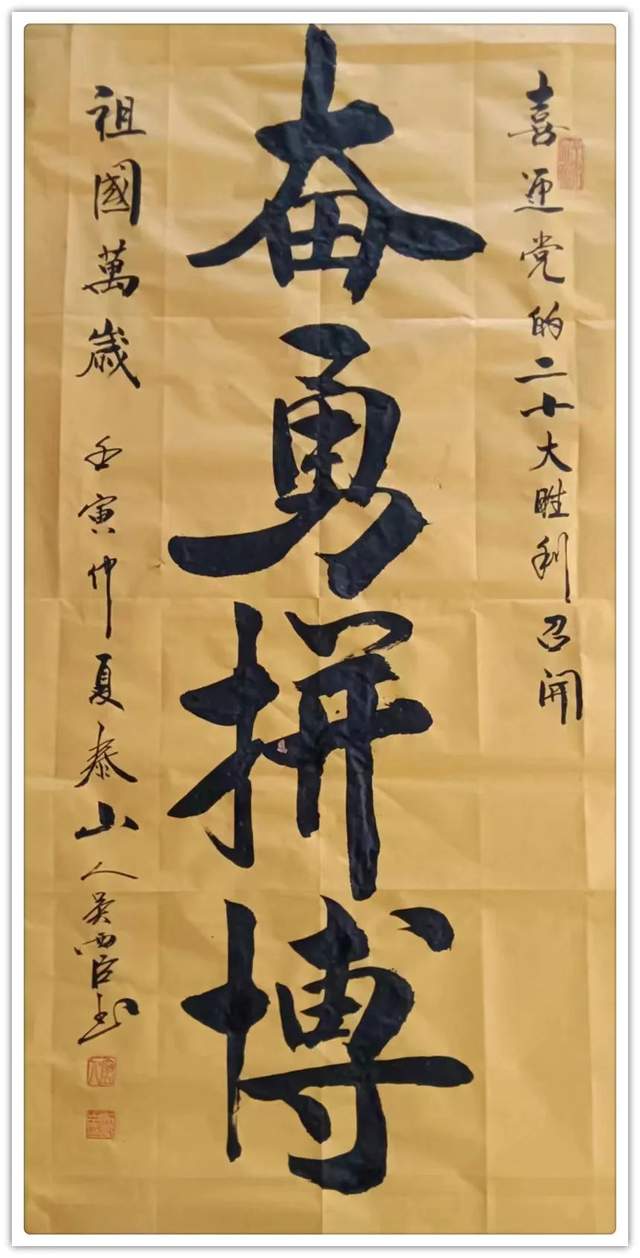 喜迎党的二十大胜利召开
奋勇拼搏
祖國萬歲 壬寅仲夏泰山人吴西臣书